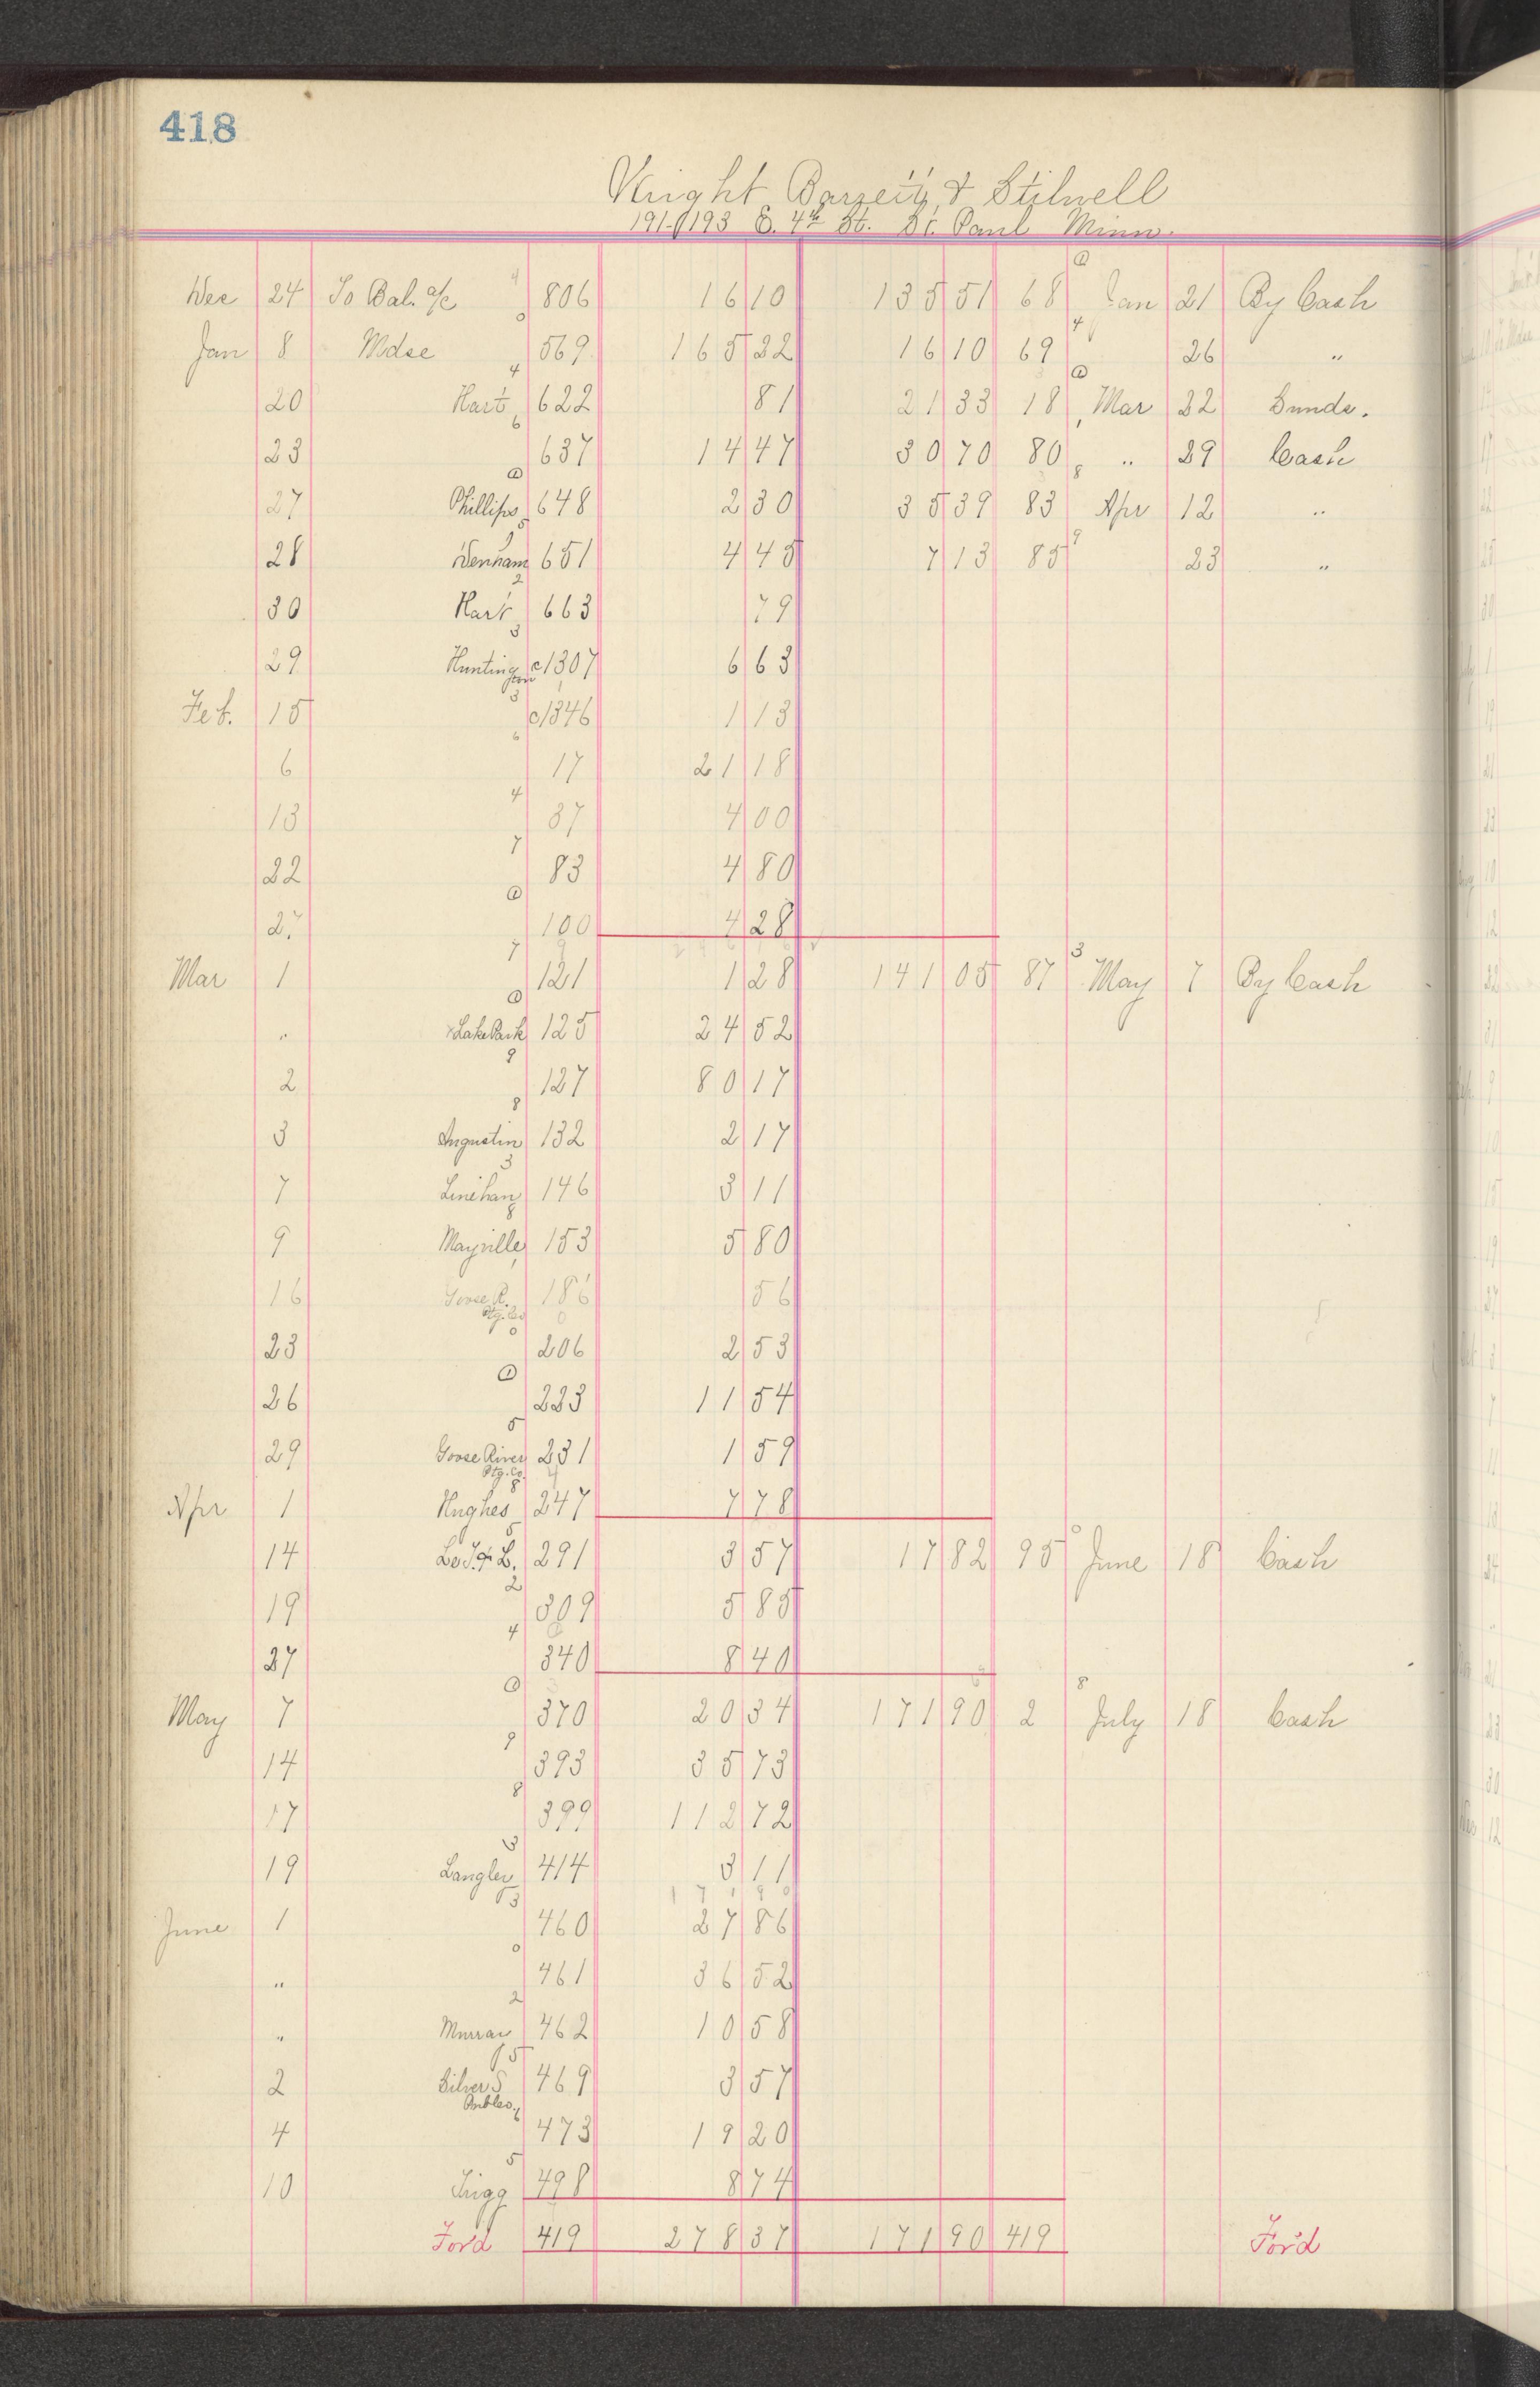 418
Wright, Barrett, & Stilwell
191-193 E. 4th St. St. Paul Minn.
Dec 24 To Bal. a/c 806 16 10 135 51 68 Jan 21 By Cash
Jan 8 Mdse 569 165 32 16 10 69 26 "
20 Hart 622 81 21 33 18 Mar 22 Sunds.
23 637 14 47 30 70 80 " 29 Cash
27 Phillips 648 2 30 35 39 83 Apr 12 "
28 Denham 651 4 45 7 13 85 23 "
30 Hart 663 79
29 Huntington c1307 6 63
Feb. 15 c1346 1 13
6 17 21 18
13 37 4 00
22 83 4 80
27 100 4 28
Mar 1 121 1 28 141 05 87 May 7 By Cash
" Lake Park 125 24 52
2 127 80 17
3 Augustin 132 2 17
7 Linehan 146 3 11
9 Mayville 153 5 80
16 Goose R. Ptg. Co 186 56
23 206 2 53
26 223 11 54
29 Goose River Ptg. Co. 231 1 59
Apr 1 Hughes 247 7 78
14 L. 291 3 57 17 82 95 June 18 Cash
19 309 5 85
27 340 8 40
May 7 370 20 34 171 90 2 July 18 Cash
14 393 35 73
17 399 112 72
19 Langley 414 3 11
June 1 460 27 86
" 461 36 52
" Murray 462 10 58
2 Silver S 469 3 57
4 473 19 20
10 Trigg 498 8 74
For'd 419 278 37 171 90 419 For'd